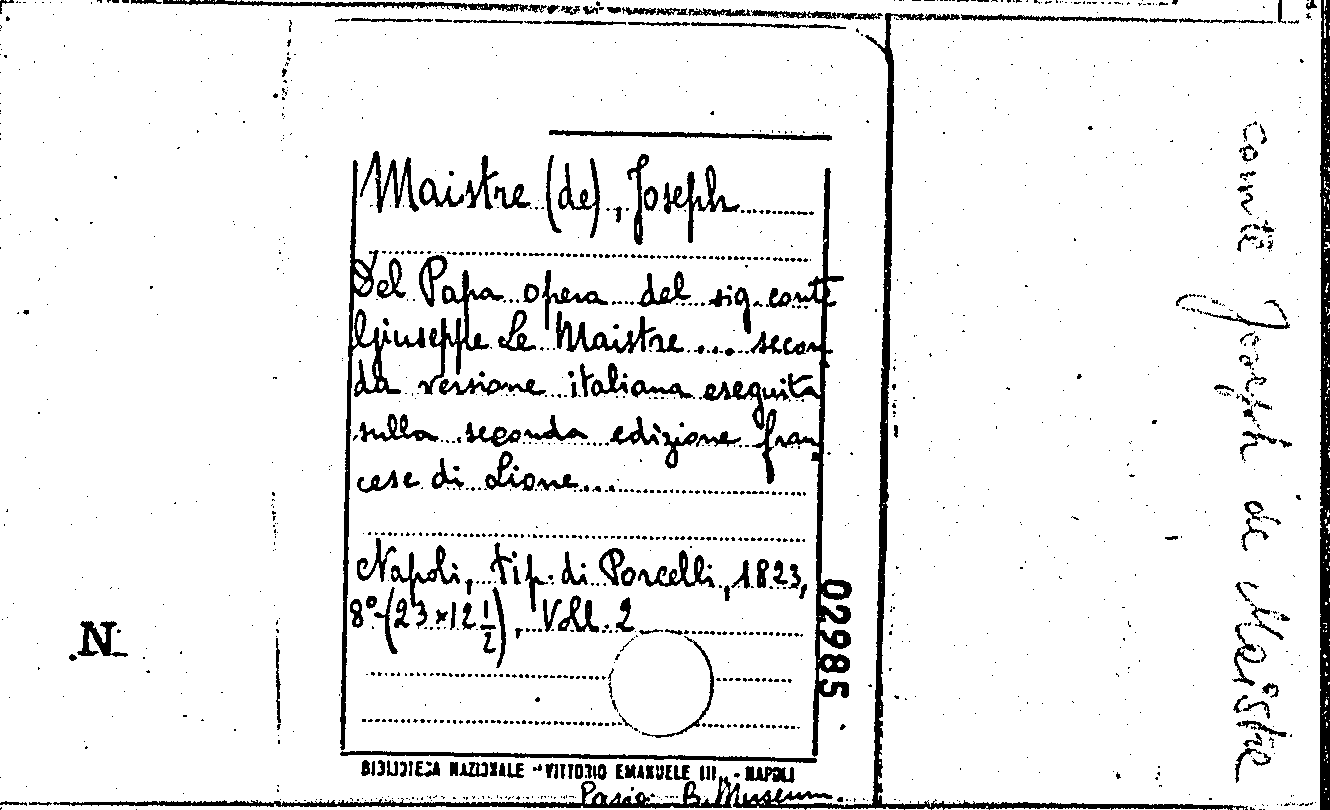 Maistre (de), Joseph
Del Papa opera del sig. conte
Giuseppe Le Maistre... secon
da versione italiana eseguita
sulla seconda edizione fran
cese di Lione...
Napoli, tip. di Porcelli, 1823,
8°-(23×12 1/2), Voll. 2
02985
BIBLIOTECA NAZIONALE "VITTORIO EMANUELE III" - NAPOLI
B. Museum.
N
comte Joseph de Maistre